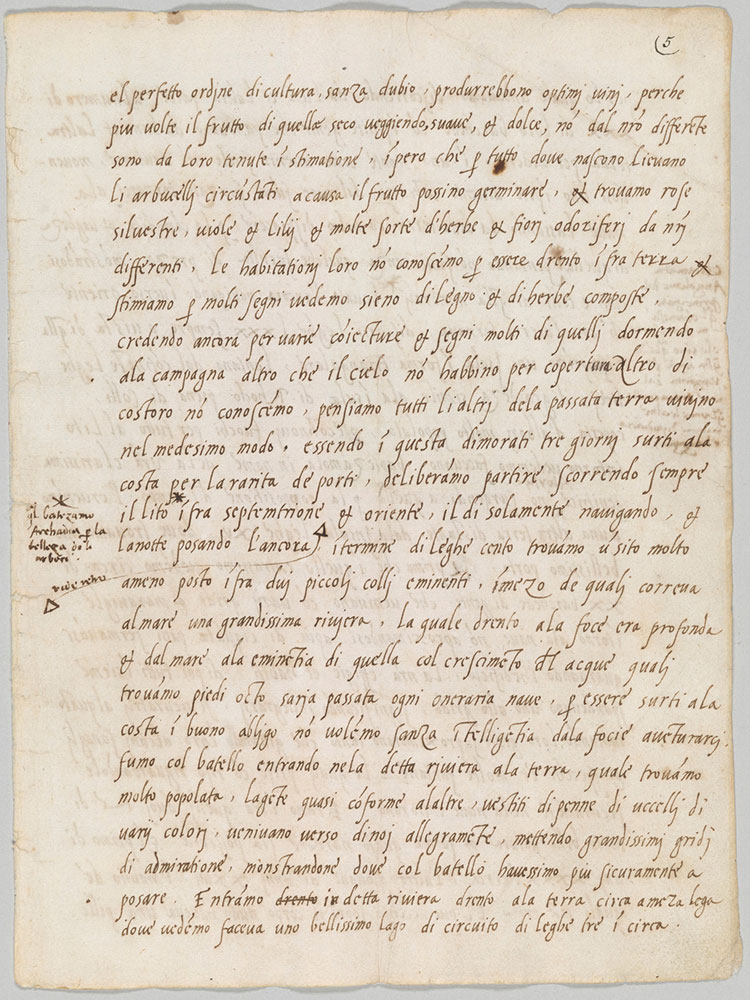 5
el perfetto ordine di cultura, sanza dubio, produrrebbono optimj vinj, perche
piu volte il frutto di quellæ seco veggiendo, suave, & dolce, nó dal nr̃o differẽte
sono da loro tenute í stimatione, í pero che p tutto dove nascono lievano
li arbucellj circústati a causa il frutto possino germinare, & trovamo rose
silvestre, viole & lilij & molte sorte d'herbe & fiorj odoziferj da nr̃j
differentj, Le habitationj loro nó conoscémo p essere drento í fra terra &
stimiamo p molti segni vedemo sieno di legno & di herbe composte,
credendo ancora per varie cóiecture & segni molti di quellj dormendo
ala campagna altro che il cielo nó habbino per copertura. Altro di
costoro nó conoscémo, pensiamo tutti li altrj dela passata terra vivino
nel medesimo modo, essendo í questa dimorati tre giornj surti ala
costa per la rarita de portj, deliberámo partire scorrendo sempre
il lito ífra septemtrione & oriente, il di solamente navigando, &
la notte posando l'ancora, í termine di leghe cento trovámo ú sito molto
ameno posto í fra duj piccolj collj eminentj, í mezo de qualj correva
al mare una grandissima riviera, la quale drento ala foce era profonda
& dal mare ala eminẽtia di quella col crescimẽto dl acque qualj
trovámo piedi octo sarja passata ogni oneraria nave, p essere surti ala
costa í buono abligo nó volémo sanza ítelligẽtia dála focie avẽturarcj
fumo col batello entrando nela detta riviera ala terra, quale trovámo
molto popolata, la gẽte quasi cóforme al altre, vestiti di penne di uccellj di
varij colorj, venivano verso di noj allegramẽte, mettendo grandissimj gridj
di admiratione, monstrandone dove col batello havessimo piu sicuramente a
posare. Entrámo drento in detta riviera drento ala terra circa a meza lega
dove vedémo faceva uno bellissimo lago di circuito di leghe tre í circa.
ql batezamo
Archadia p la
bellezza de li
arbori